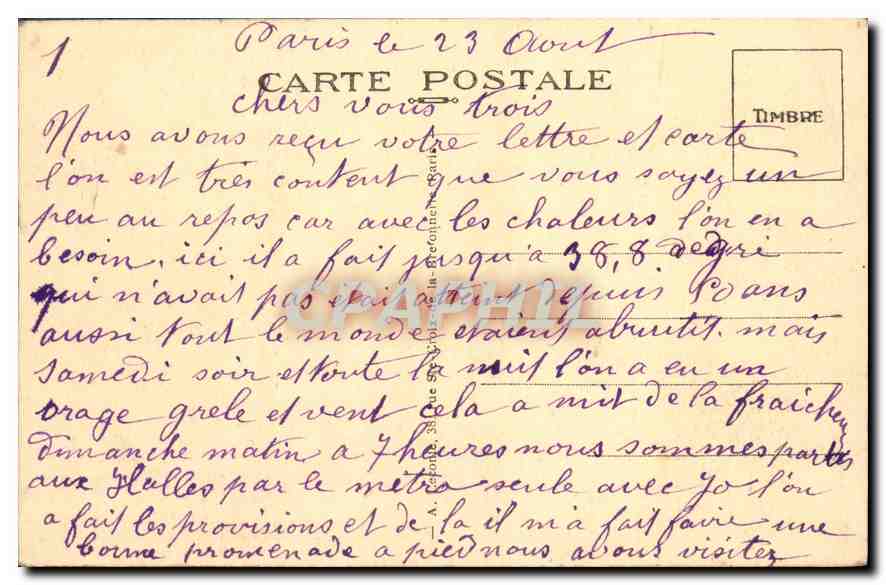 1
Paris le 23 Aout
CARTE POSTALE
chers vous trois
TIMBRE
Nous avons reçu votre lettre et carte
l'on est très content que vous soyez un
peu au repos car avec les chaleurs l'on en a
besoin, ici il a fait jusqu'a 38,8 degri
qui n'avait pas etait attent depuis 50 ans
aussi tout le monde etaient abrutit. mais
Samedi soir et toute la nuit l'on a eu un
orage grele et vent cela a mit de la fraicheur
dimanche matin a 7 heures nous sommes partis
aux Halles par le métro seule avec Jo l'on
a fait les provisions et de la il m'a fait faire une
bonne promenade a pied nous avons visitez
A. Leconte, 38, rue Ste-Croix-de-la-Bretonnerie, Paris
CPAPHIL